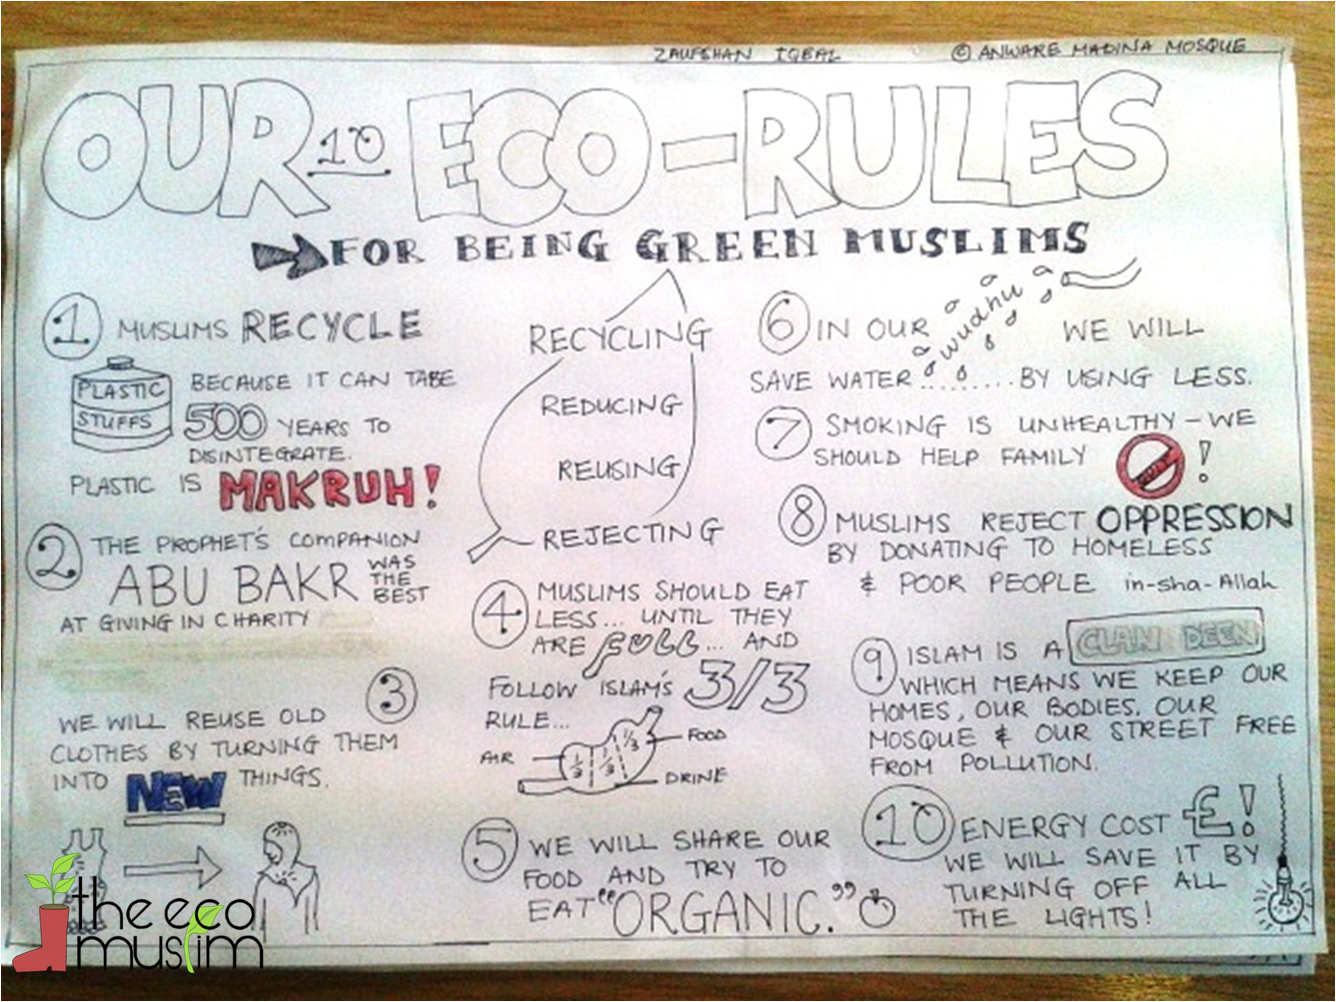 ZAUFSHAN IQBAL © ANWARE MADINA MOSQUE
OUR 10 ECO-RULES
FOR BEING GREEN MUSLIMS
1 MUSLIMS RECYCLE
PLASTIC STUFFS
BECAUSE IT CAN TAKE
500 YEARS TO
DISINTEGRATE.
PLASTIC IS MAKRUH!
2 THE PROPHET'S COMPANION
ABU BAKR WAS THE BEST
AT GIVING IN CHARITY
3
WE WILL REUSE OLD
CLOTHES BY TURNING THEM
INTO NEW THINGS.
RECYCLING
REDUCING
REUSING
REJECTING
4 MUSLIMS SHOULD EAT
LESS... UNTIL THEY
ARE FULL... AND
FOLLOW ISLAM'S 3/3
RULE...
AIR
1/3 1/3 1/3
FOOD
DRINK
5 WE WILL SHARE OUR
FOOD AND TRY TO
EAT "ORGANIC."
6 IN OUR wudhu WE WILL
SAVE WATER......... BY USING LESS.
7 SMOKING IS UNHEALTHY – WE
SHOULD HELP FAMILY !
8 MUSLIMS REJECT OPPRESSION
BY DONATING TO HOMELESS
& POOR PEOPLE in-sha-Allah
9 ISLAM IS A CLAN DEEN
WHICH MEANS WE KEEP OUR
HOMES, OUR BODIES, OUR
MOSQUE & OUR STREET FREE
FROM POLLUTION.
10 ENERGY COST £!
WE WILL SAVE IT BY
TURNING OFF ALL
THE LIGHTS!
the eco
muslim